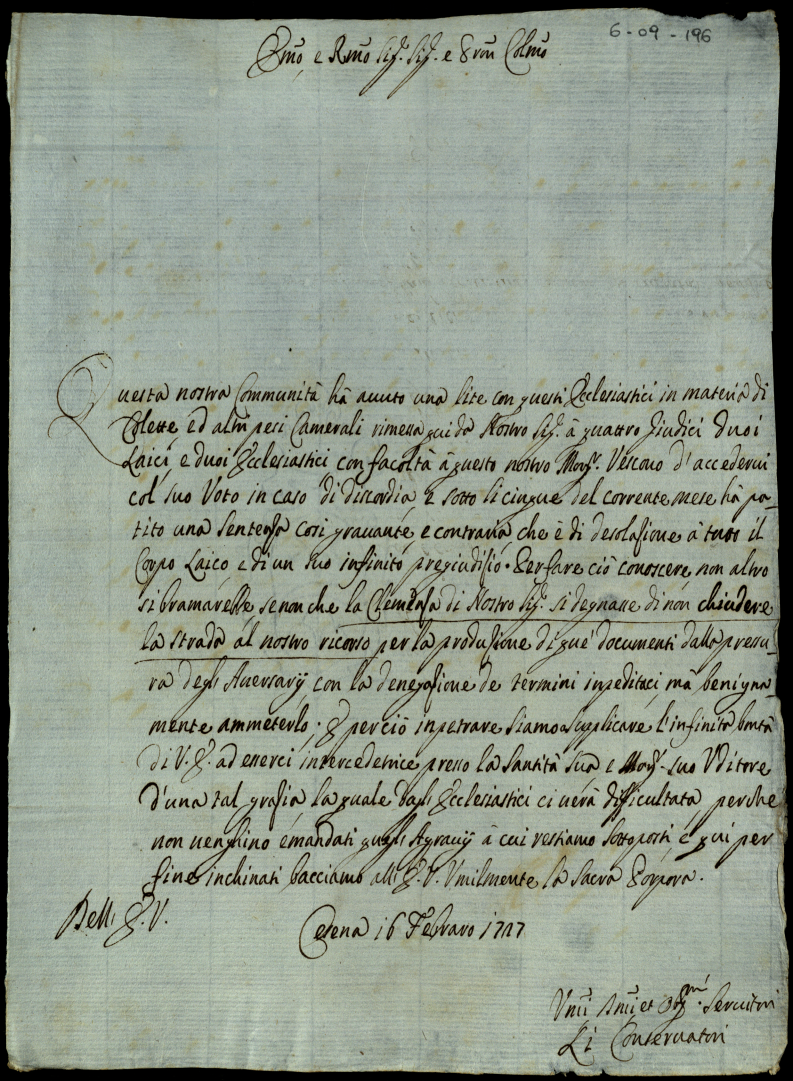 6-09-196
Emo, e Rmo Sig.r Sig.r e Pron Colmo
Questa nostra Communità hà auuto una lite con questi Ecclesiastici in materia di
Colette, ed altri pesi Camerali rimessa qui da Nostro Sig.r à quattro Giudici duoi
Laici, e duoi Ecclesiastici con facoltà à questo nostro Mons.r Vescouo d'accederui
col suo Voto in caso di discordia, e sotto li cinque del corrente mese hà pa-
tito una sentenza così grauante, e contraria, che è di desolazione à tutto il
Corpo Laico, e di un suo infinito pregiudizio. Per fare ciò conoscere, non altro
si bramarebbe, se non che la Clemenza di Nostro Sig.r si degnasse di non chiudere
la strada al nostro ricorso per la produzione di que' documenti dalla pressu-
ra degli Auersarij con la denegazione de termini inpeditaci mà benigna-
mente ammeterlo; E per ciò inpetrare siamo a supplicare l'infinita bontà
di V. E. ad esserci intercedetrice presso la Santità Sua e Mons.r suo Uditore
d'una tal grazia la quale dagli Ecclesiastici ci uerà difficultata, perche
non uenghino emandati quegli Agrauij à cui restiamo sottoposti e qui per
fine inchinati bacciamo all' E. V. Umilmente la Sacra Porpora.
Dell' E. V.
Cesena 16 Febraro 1727
Umi Dmi et Obgmi Seruitori
Li Conseruatori